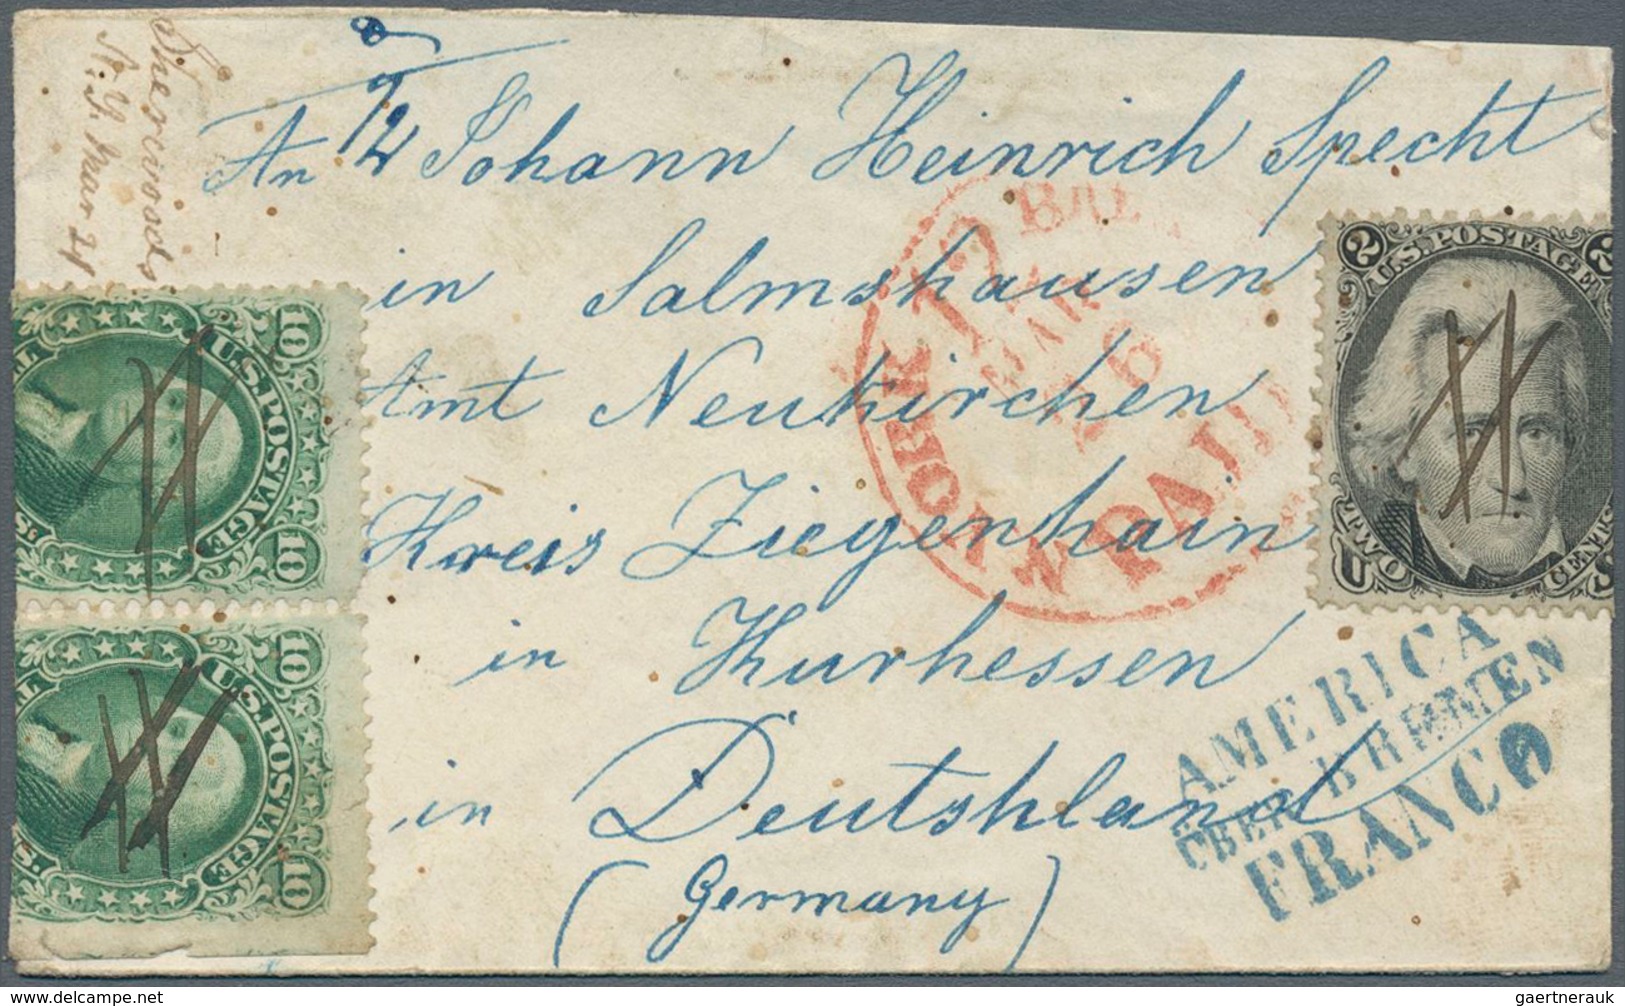 Sherwoods
N.Y. Mar 24
An Johann Heinrich Specht
in Salmshausen
Amt Neukirchen
Kreis Ziegenhain
in Kurhessen
in Deutshland
(Germany)
N YORK 12 BREM
MAR
26
PAID
AMERICA
ÜBER BREMEN
FRANCO
10 U.S. POSTAGE 10
10 U.S. POSTAGE 10
2 U.S. POSTAGE 2
TWO CENTS
U S
gaertnerauk